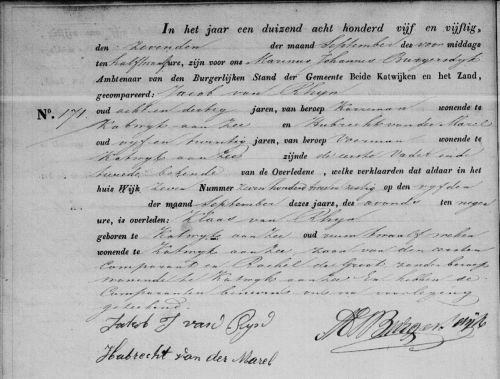 In het jaar een duizend acht honderd vijf en vijftig,
den zevenden der maand September des voor middags
ten half ure, zijn voor ons Marinus Johannes Burgersdijk
Ambtenaar van den Burgerlijken Stand der Gemeente Beide Katwijken en het Zand,
gecompareerd: Jacob van Rhyn
No. 171. oud acht en dertig jaren, van beroep wonende te
Katwyk aan Zee en Hubrecht van der Marel
oud vyf en twintig jaren, van beroep Voerman wonende te
Katwyk aan Zee zijnde de eerste Vader en de
tweede bekende van de Overledene, welke verklaarden dat aldaar in het
huis Wijk zeven Nummer zeven honderd zestig op den vyfden
der maand September dezes jaars, des avonds ten negen
ure, is overleden: Klaas van Rhyn
geboren te Katwyk aan Zee oud ruim twaalf weken
wonende te Katwyk aan Zee zoon van den eersten
Comparant en Rachel de Groot zonder beroep
wonende te Katwyk aan Zee En hebben de
Comparanten benevens ons na voorlezing
geteekend.
Jakob J van Ryn
Hubrecht van der Marel
Burgersdijk